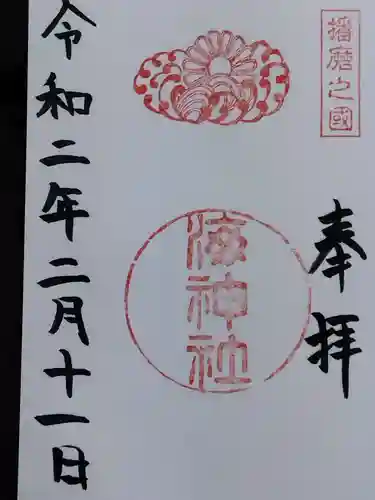 播磨之國
奉拝
海神社
令和二年二月十一日